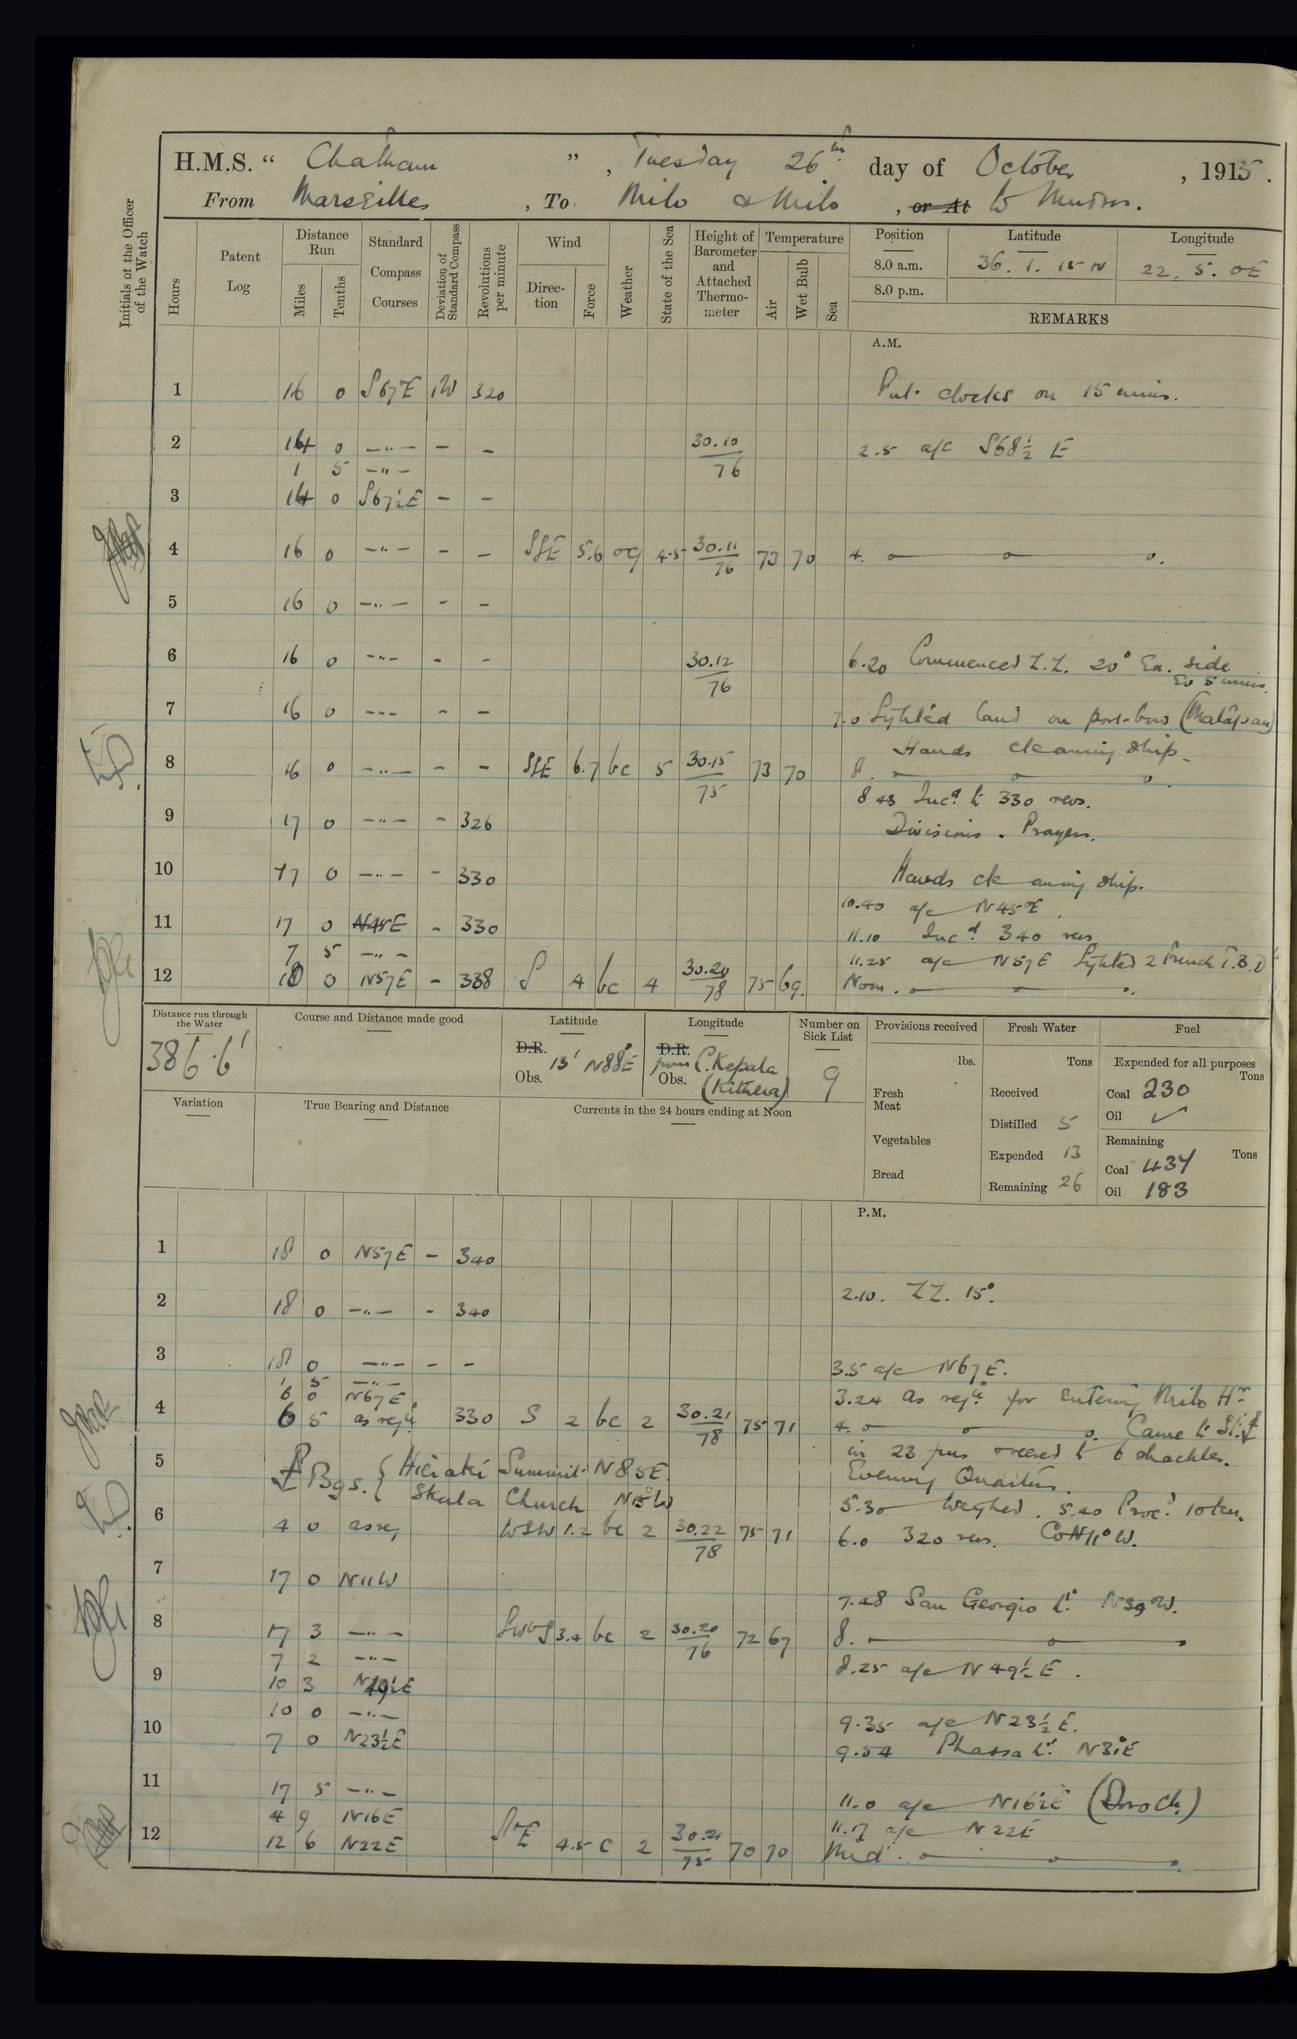 H.M.S. “ Chatham ” , Tuesday 26th day of October , 1915.
From Marseilles , To Milo & Milo , or At to Mudros.
Initials of the Officer of the Watch
Hours Patent Log Distance Run Miles Tenths Standard Compass Courses Deviation of Standard Compass Revolutions per minute Wind Direction Force Weather State of the Sea Height of Barometer and Attached Thermometer Temperature Air Wet Bulb Sea Position Latitude Longitude
8.0 a.m. 36. 1. 15 N 22. 5. 0 E
8.0 p.m.
REMARKS
A.M.
1 16 0 S67E 1W 320 Put clocks on 15 mins.
2 14 0 —"— – – 30.10/76 2.5 a/c S68½ E
1 5 —"—
3 14 0 S67½E – –
4 16 0 —"— – – SSE 5.6 og 4.5 30.11/76 73 70 4.
5 16 0 —"— – –
6 16 0 —"— – – 30.12/76 6.20 Commenced Z.Z. 20° Ea. side
Ev 5 mins.
7 16 0 —"— – – 7.0 Sighted land on port bow (Matapan)
Hands cleaning ship.
8 16 0 —"— – – SSE 6.7 bc 5 30.15/75 73 70 8.
8 43 Incd. to 330 revs.
9 17 0 —"— – 326 Divisions. Prayers.
10 17 0 —"— – 330 Hands cleaning ship.
10.40 a/c N45E.
11 17 0 N45E – 330 11.10 Incd 340 revs
7 5 —"— 11.25 a/c N57E Sighted 2 French T.B.Ds
12 10 0 N57E – 338 S 4 bc 4 30.20/78 75 69. Noon.
Distance run through the Water Course and Distance made good Latitude Longitude Number on Sick List Provisions received Fresh Water Fuel
386.6' D.R. Obs. 13' N88°E D.R. Obs. from C. Kepala (Kithera) 9
lbs. Tons Expended for all purposes Tons
Fresh Meat Received Coal 230
Oil ✓
Variation True Bearing and Distance Currents in the 24 hours ending at Noon
Distilled 5
Vegetables Expended 13 Remaining Tons
Coal 437
Bread Remaining 26 Oil 183
P.M.
1 18 0 N57E – 340
2 18 0 —"— – 340 2.10. ZZ. 15°.
3 18 0 —"— – – 3.5 a/c N67E.
1 5 —"—
6 0 N67E 3.24 As reqd. for entering Milo Hr
4 6 5 as reqd. 330 S 2 bc 2 30.21/78 75 71 4. Came to
in 23 fms veered to 6 shackles.
5 Bgs. { Hieraki Summit N85E. Evening Quarters.
Skala Church
5.30 Weighed. 5.40 Procd. 10 kn.
6 4 0 as req WSW 1.2 bc 2 30.22/78 75 71 6.0 320 revs. Co N11°W.
7 17 0 N11W
7.48 San Georgio Lt. N39W.
8 17 3 —"— SWbS 3.4 bc 2 30.20/76 72 67 8.
7 2 —"— 8.25 a/c N49½E.
9 10 3 N49½E
10 0 —"— 9.35 a/c N23½E.
10 7 0 N23½E 9.54 Phassa Lt. N31E
11 17 5 —"— 11.0 a/c N16E (Doro Ch.)
4 9 N16E 11.17 a/c N22E
12 12 6 N22E 4.5 c 2 30.21/75 70 70 Mid.